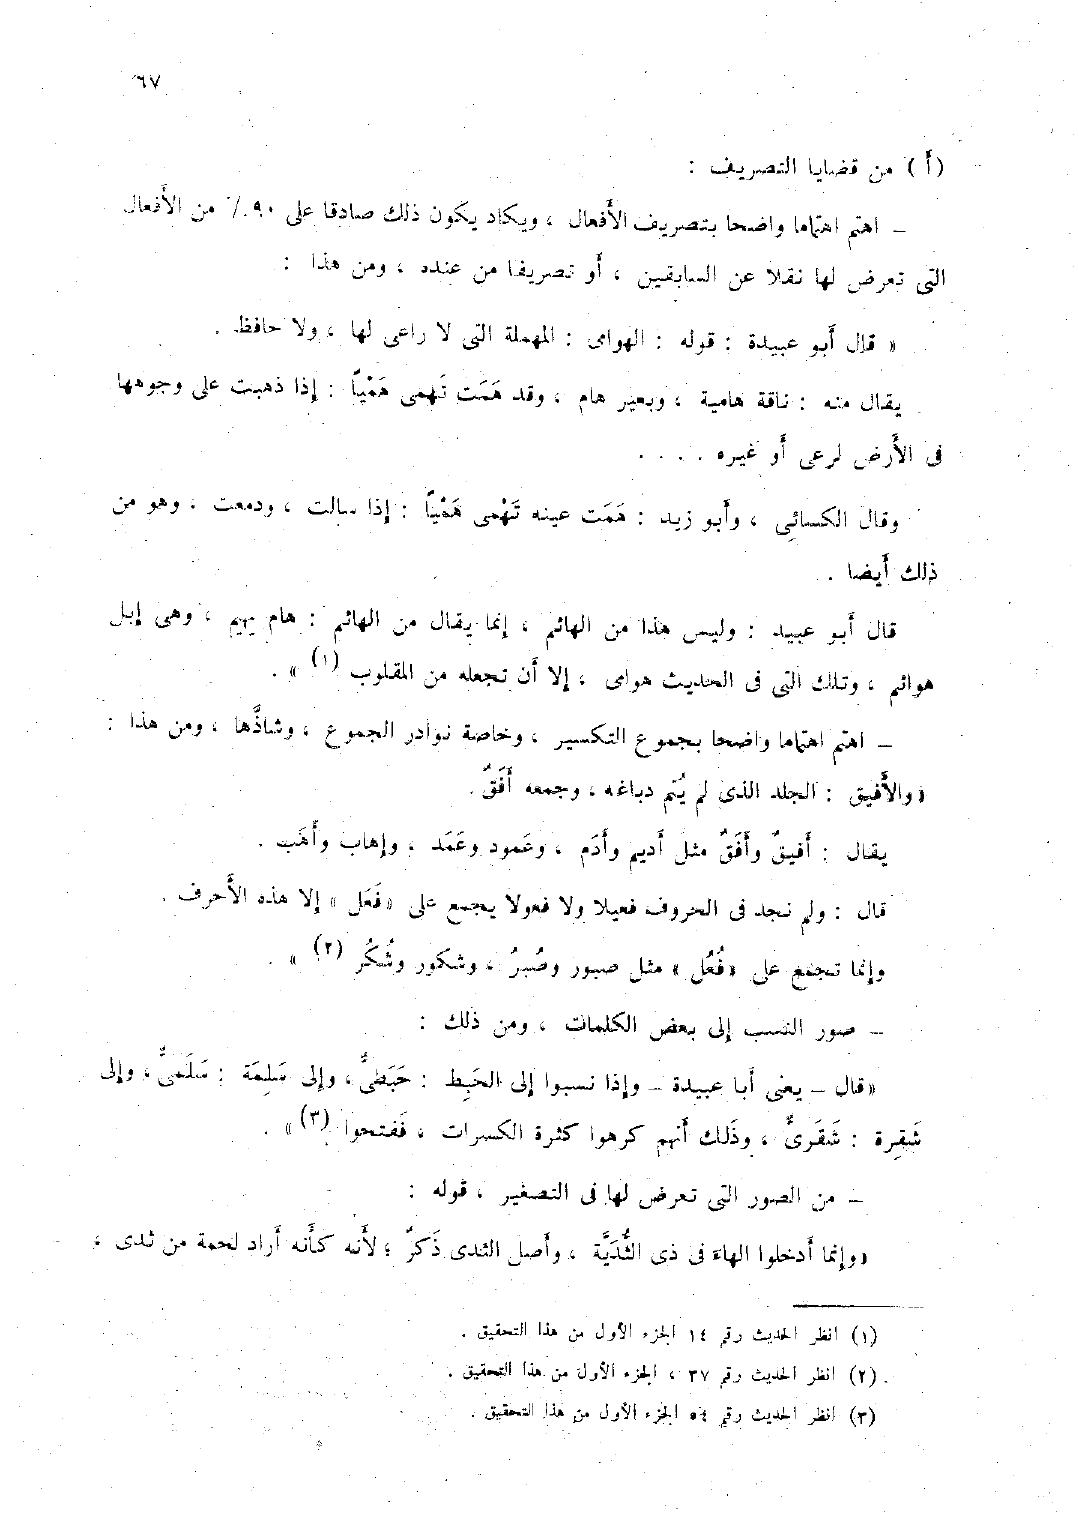 ٦٧
(أ) من قضايا التصريف :
– اهتم اهتماما واضحا بتصريف الأفعال ، ويكاد يكون ذلك صادقا على ٩٠٪ من الأفعال
التى تعرض لها نقلا عن السابقين ، أو تصريفا من عنده ، ومن هذا :
« قال أبو عبيدة : قوله : الهوامى : المهملة التى لا راعى لها ، ولا حافظ .
يقال منه : ناقة هامية ، وبعير هام ، وقد هَمَت تَهمى هَمْيًا : إذا ذهبت على وجوهها
فى الأرض لرعى أو غيره . . . .
وقال الكسائى ، وأبو زيد : هَمَت عينه تَهْمى هَمْيًا : إذا سالت ، ودمعت ، وهو من
ذلك أيضا .
قال أبو عبيد : وليس هذا من الهائم ، إنما يقال من الهائم : هام يهيم ، وهى إبل
هوائم ، وتلك التى فى الحديث هوامى ، إلا أن تجعله من المقلوب (١) » .
– اهتم اهتماما واضحا بجموع التكسير ، وخاصة نوادر الجموع ، وشاذَّها ، ومن هذا :
« والأَفيق : الجلد الذى لم يُتم دباغه ، وجمعه أَفَقٌ .
يقال : أَفيقٌ وأَفَقٌ مثل أديم وأَدَم ، وعَمود وعَمَد ، وإهاب وأَهَب .
قال : ولم نجد فى الحروف فعيلا ولا فعولا يجمع على «فَعَل» إلا هذه الأحرف .
وإنما تجمع على «فُعُل» مثل صبور وصُبرُ ، وشكور وشُكُر (٢) » .
– صور النسب إلى بعض الكلمات ، ومن ذلك :
«قال – يعنى أبا عبيدة – وإذا نسبوا إلى الحَبِط : حَبَطىٌّ ، وإلى سَلِمَة : سَلَمىٌّ ، وإلى
شَقِرة : شَقَرىٌّ ، وذَلك أنهم كرهوا كثرة الكسرات ، فَفتحوا (٣) » .
– من الصور التى تعرض لها فى التصغير ، قوله :
«وإنما أدخلوا الهاءَ فى ذى الثُّدَيَّة ، وأصل الثدى ذَكرٌ ؛ لأَنه كأَنه أراد لحمة من ثدى ،
(١) انظر الحديث رقم ١٤ الجزء الأول من هذا التحقيق .
(٢) انظر الحديث رقم ٣٧ ، الجزء الأول من هذا التحقيق .
(٣) انظر الحديث رقم ٥٤ الجزء الأول من هذا التحقيق .